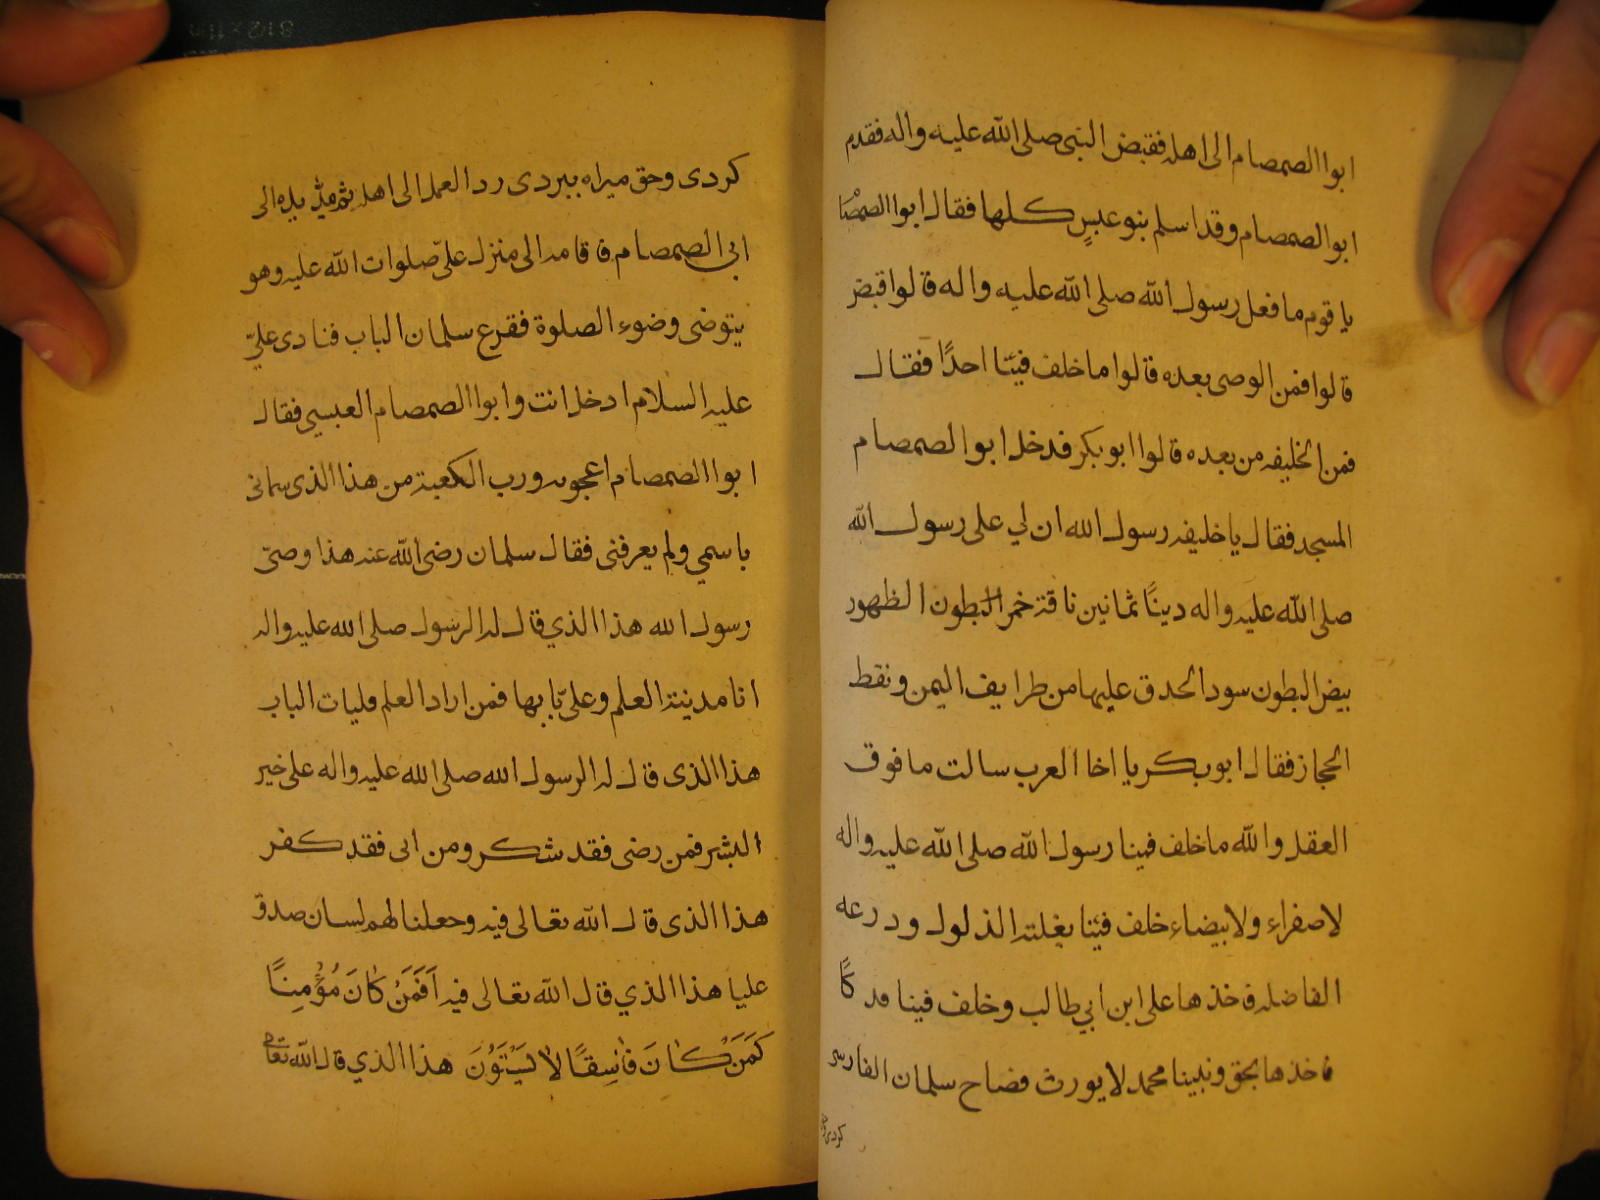 ابوا الصمصام الى اهله فقبض النبى صلى الله عليه واله فقدم
ابوا الصمصام وقد اسلم بنو عبسٍ كلها فقال ابوا الصمصا
يا قوم ما فعل رسول الله صلى الله عليه واله قالوا قبض
قالوا فمن الوصى بعده قالوا ما خلف فينا احدًا فقال
فمن الخليفه من بعده قالوا ابو بكر فدخل ابوا لصمصام
المسجد فقال يا خليفه رسول الله ان لي على رسول الله
صلى الله عليه واله دينًا ثمانين ناقة خمر البطون الظهور
بيض البطون سود الحدق عليها من طرايف اليمن ونقط
الحجاز فقال ابو بكر يا اخا العرب سالت ما فوق
العقل والله ما خلف فينا رسول الله صلى الله عليه واله
لا صفراء ولا بيضاء خلف فينا بغلته الذلول ودرعه
الفاضله فاخذها على ابن أبي طالب وخلف فينا فدكًا
فاخذها بحق ونبينا محمد لا يورث فصاح سلمان الفارسى
كردى
كردى وحق ميراه ببردى رد العمل الى اهله ثم يده الى
ابى الصمصام فاقامه الى منزل علىّ صلوات الله عليه وهو
يتوضى وضوء الصلوة فقرع سلمان الباب فنادى علىّ
عليه السلام ادخل انت وابوا الصمصام العبسي فقال
ابوا الصمصام اعجوبه ورب الكعبة من هذا الذى سمانى
باسمي ولم يعرفنى فقال سلمان رضى الله عنه هذا وصىّ
رسول الله هذا الذي قال له الرسول صلى الله عليه واله
انا مدينة العلم وعلىّ بابها فمن اراد العلم فليات الباب
هذا الذى قال له الرسول الله صلى الله عليه واله على خير
البشر فمن رضى فقد شكر ومن ابى فقد كفر
هذا الذى قال الله تعالى فيه وجعلنا لهم لسان صدق
عليا هذا الذي قال الله تعالى فيه اَفَمَنْ كَانَ مُؤْمِنًا
كَمَنْ كَانَ فَاسِقًا لَا يَسْتَوُنَ هذا الذي قال الله تعالى